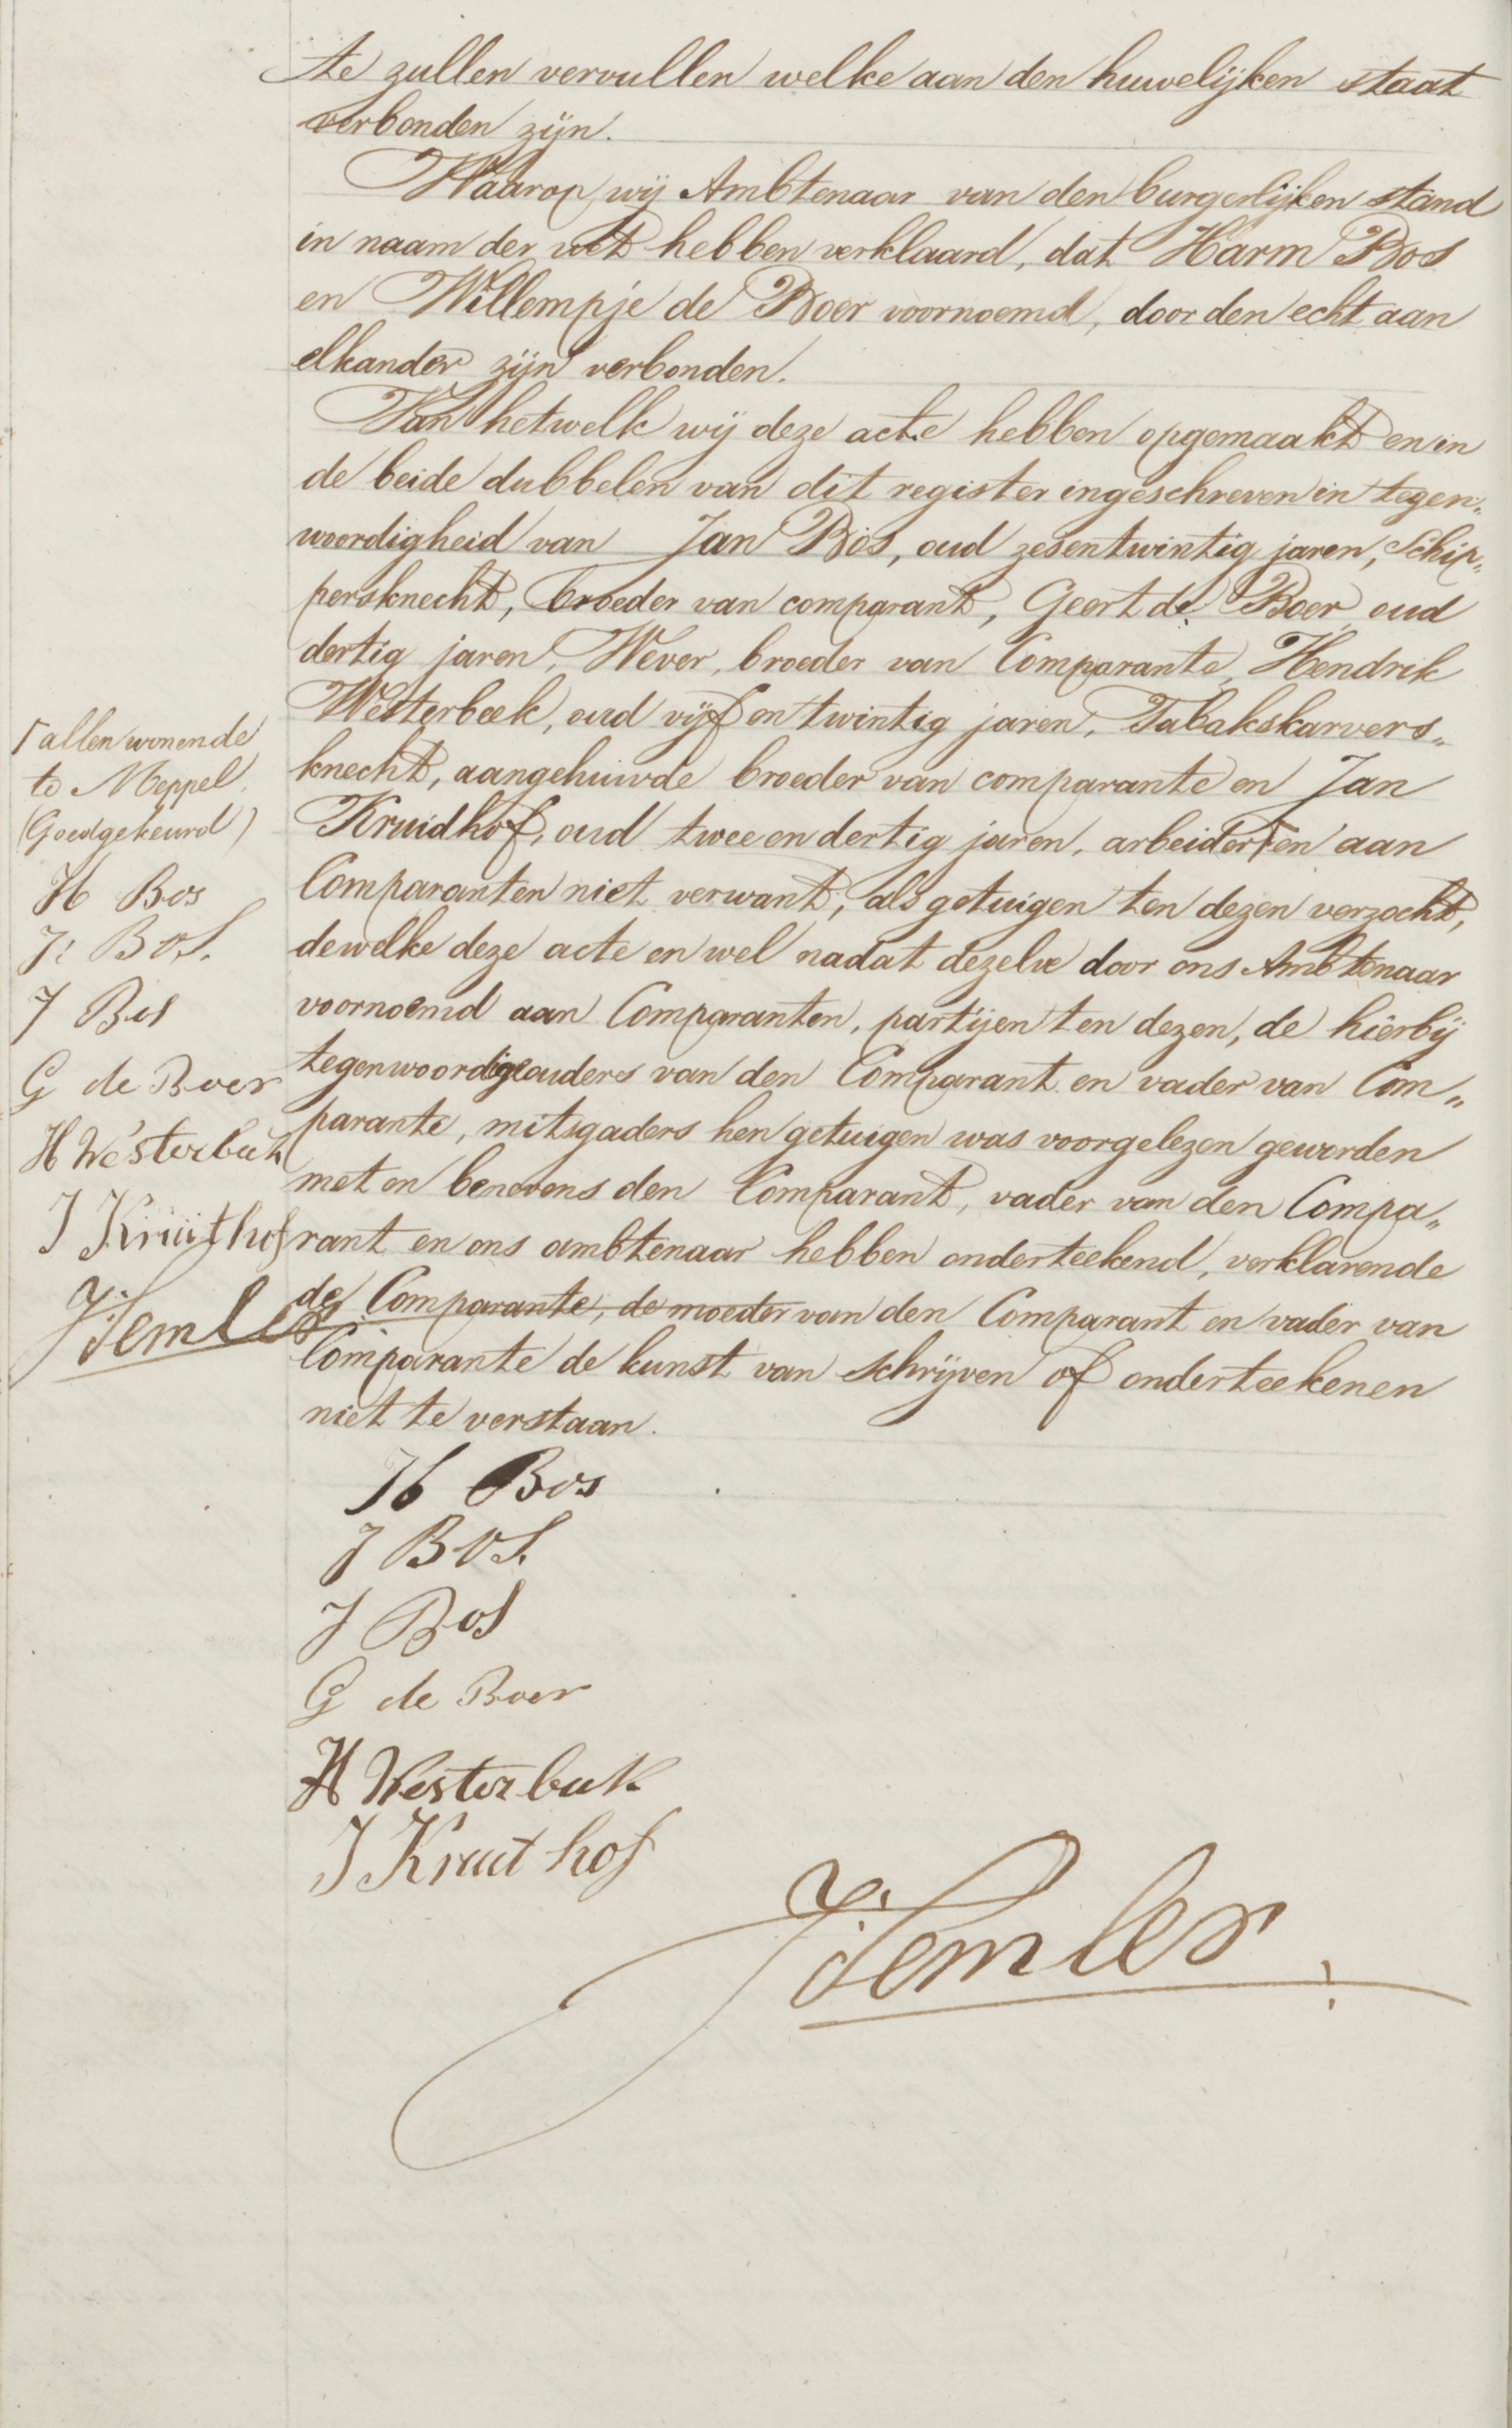 te zullen vervullen welke aan den huwelijken staat
verbonden zijn.
Waarop wij Ambtenaar van den burgerlijken stand
in naam der wet hebben verklaard, dat Harm Bos
en Willempje de Boer voornoemd, door den echt aan
elkander zijn verbonden.
Van hetwelk wij deze acte hebben opgemaakt en in
de beide dubbelen van dit register ingeschreven in tegen„
woordigheid van Jan Bos, oud zesentwintig jaren, Schip„
persknecht, broeder van comparant, Geert de Boer oud
dertig jaren, Wever, broeder van Comparante, Hendrik
Westerbeek, oud vijf en twintig jaren, Tabakskarvers„
knecht, aangehuwde broeder van comparante en Jan
Kruidhof, oud twee en dertig jaren, arbeider Γ en aan
Comparanten niet verwant, als getuigen ten dezen verzocht,
dewelke deze acte en wel nadat dezelve door ons Ambtenaar
voornoemd aan Comparanten, partijen ten dezen, de hierbij
tegenwoordige ouders van den Comparant en vader van Com„
parante, mitsgaders hen getuigen was voorgelezen geworden
met en benevens den Comparant, vader van den Compa„
rant en ons ambtenaar hebben onderteekend, verklarende
de Comparante, de moeder van den Comparant en vader van
Comparante de kunst van Schrijven of onderteekenen
niet te verstaan.
Γ allen wonende
te Meppel.
(Goedgekeurd)
H Bos
J: Bos.
J Bos
G de Boer
H Westerbeek
J Kruithof
J Semler
H Bos
J Bos.
J Bos
G de Boer
H Westerbeek
J Kruithof
J Semler